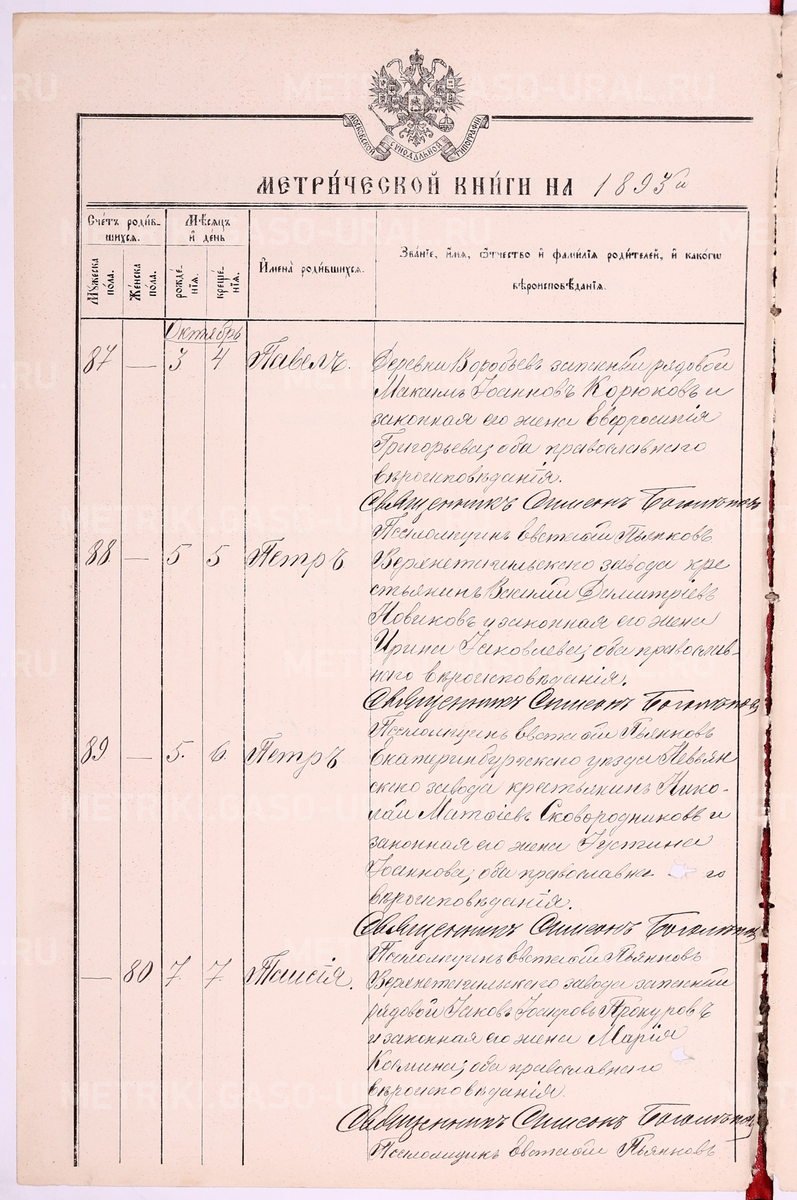 МОСКОВСКОЙ СѴНОДАЛЬНОЙ ТИПОГРАФІИ
МЕТРИ́ЧЕСКОЙ КНИ́ГИ НА 1893й
Сче́тъ роди́в-
шихся.
Мѣ́сяцъ
и҆ де́нь
И҆мена̀ роди́вшихся.
Зва́ніе, и҆́мя, ѻ҆́тчество и҆ фами́лія роди́телей, и҆ како́гѡ
вѣроисповѣ́данія.
Мꙋ́жеска
по́ла.
Же́нска
по́ла.
рожде́-
нія.
креще́-
нія.
Октябрь
87 — 3 4 Павелъ. Деревни Воробьевъ запасный рядовой
Максимъ Іоанновъ Корюковъ и
законная его жена Евфросинія
Григорьева; оба православнаго
вѣроисповѣданія.
Священникъ Симеонъ
Псаломщикъ Евстафій Пьянковъ
88 — 5 5 Петръ Верхнетагильскаго завода кре
стьянинъ Василій Димитріевъ
Новиковъ и законная его жена
Ирина Іаковлева; оба православ-
наго вѣроисповѣданія.
Священникъ Симеонъ
Псаломщикъ Евстафій Пьянковъ
89 — 5. 6. Петръ Екатеринбургскаго уѣзда Невьян
скаго завода крестьянинъ Нико-
лай Матѳіевъ Сковородниковъ и
законная его жена Іустина
Іоаннова; оба православна го
вѣроисповѣданія.
Священникъ Симеонъ
Псаломщикъ Евстафій Пьянковъ
— 80 7. 7 Таисія. Верхнетагильскаго завода запасный
рядовой Іаковъ Прокуровъ
и законная его жена Марія
Космина; оба православнаго
вѣроисповѣданія.
Священникъ Симеонъ
Псаломщикъ Евстафій Пьянковъ
METRIKI.GASO-URAL.RU